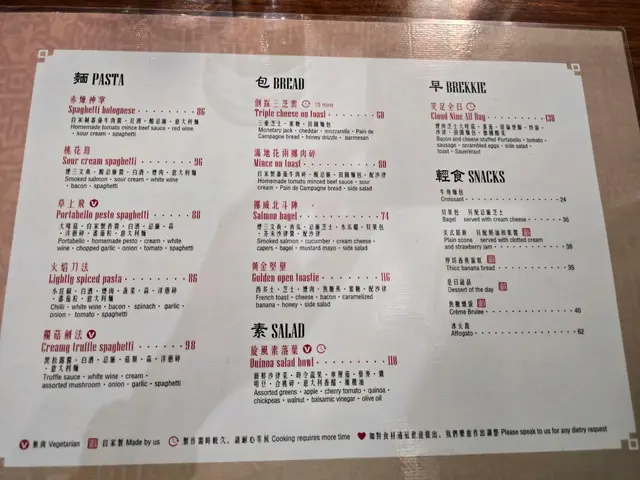 麵 PASTA
赤煉神掌
Spaghetti bolognese 86
自家製蕃茄牛肉醬・紅酒・酸忌廉・意大利麵
Homemade tomato mince beef sauce・red wine
・sour cream・spaghetti
桃花島
Sour cream spaghetti 96
煙三文魚・酸忌廉醬・白酒・煙肉・意大利麵
Smoked salmon・sour cream・white wine
・bacon・spaghetti
草上飛 V
Portabello pesto spaghetti 88
大啡菇・自家製香醬・白酒・忌廉・蒜
・洋蔥碎・蕃茄粒・意大利麵
Portabello・homemade pesto・cream・white
wine・chopped garlic・onion・tomato・spaghetti
火焰刀法
Lightly spiced pasta 86
・蕃茄粒・意大利麵
Chilli・white wine・bacon・spinach・garlic・
onion・tomato・spaghetti
蘑菇劍法 V
Creamy truffle spaghetti 98
黑松露醬・白酒・忌廉・菇類・蒜・洋蔥碎
・意大利麵
Truffle sauce・white wine・cream・
assorted mushroom・onion・garlic・spaghetti
包 BREAD
劍蹤三芝雲 15 mins
Triple cheese on toast 68
三重芝士・蜜糖・田園麵包
Monterey jack・cheddar・mozzarella・Pain de
Campagne bread・honey drizzle・parmesan
滿地花雨擲肉碎
Mince on toast 80
自家製蕃茄牛肉碎・酸忌廉・田園麵包・配沙律
Homemade tomato minced beef sauce・sour
cream・Pain de Campagne bread・side salad
挪威北斗陣
Salmon bagel 74
煙三文魚・青瓜・忌廉芝士・水瓜柳・貝果包
・芥末沙律醬・配沙律
Smoked salmon・cucumber・cream cheese・
capers・bagel・mustard mayo・side salad
黃金堅壁
Golden open toastie 116
西多士・芝士・煙肉・焦糖蕉・蜜糖・配沙律
French toast・cheese・bacon・caramelized
banana・honey・side salad
素 SALAD
旋風素落葉 V
Quinoa salad bowl 118
Assorted greens・apple・cherry tomato・quinoa・
chickpeas・walnut・balsamic vinegar・olive oil
早 BREKKIE
笑足全日
Cloud Nine All Day 138
Bacon and cheese stuffed Portabello・tomato・
sausage・scrambled eggs・side salad・
toast・Sauerkraut
輕食 SNACKS
牛角麵包
Croissant 24
貝果包 另配忌廉芝士
Bagel served with cream cheese 35
美式鬆餅 另配奶油和果醬
Plain scone served with clotted cream
and strawberry jam 38
厚切香蕉蛋糕
Thicc banana bread 35
是日甜品
Dessert of the day
焦糖燉蛋
Crème Brulee 46
冰火島
Affogato 62
V 無肉 Vegetarian 自家製 Made by us 製作需時較久，請耐心等候 Cooking requires more time 如對食材過敏歡迎提出，我們樂意作出調整 Please speak to us for any dietry request